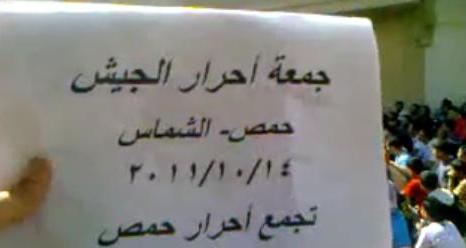 جمعة أحرار الجيش
حمص- الشماس
٢٠١١/١٠/١٤
تجمع أحرار حمص